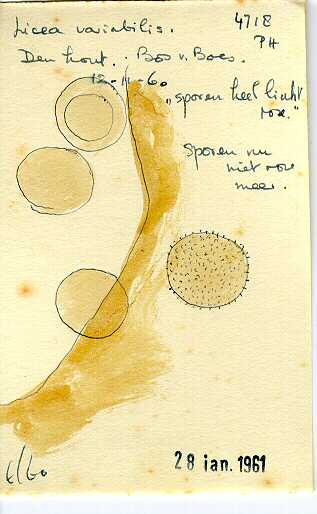 Licea variabilis.
4718
PH
Den Hout. Bos v. Boes.
12-11-60
„sporen heel licht
rose."
Sporen nu
niet rose
meer.
28 jan. 1961